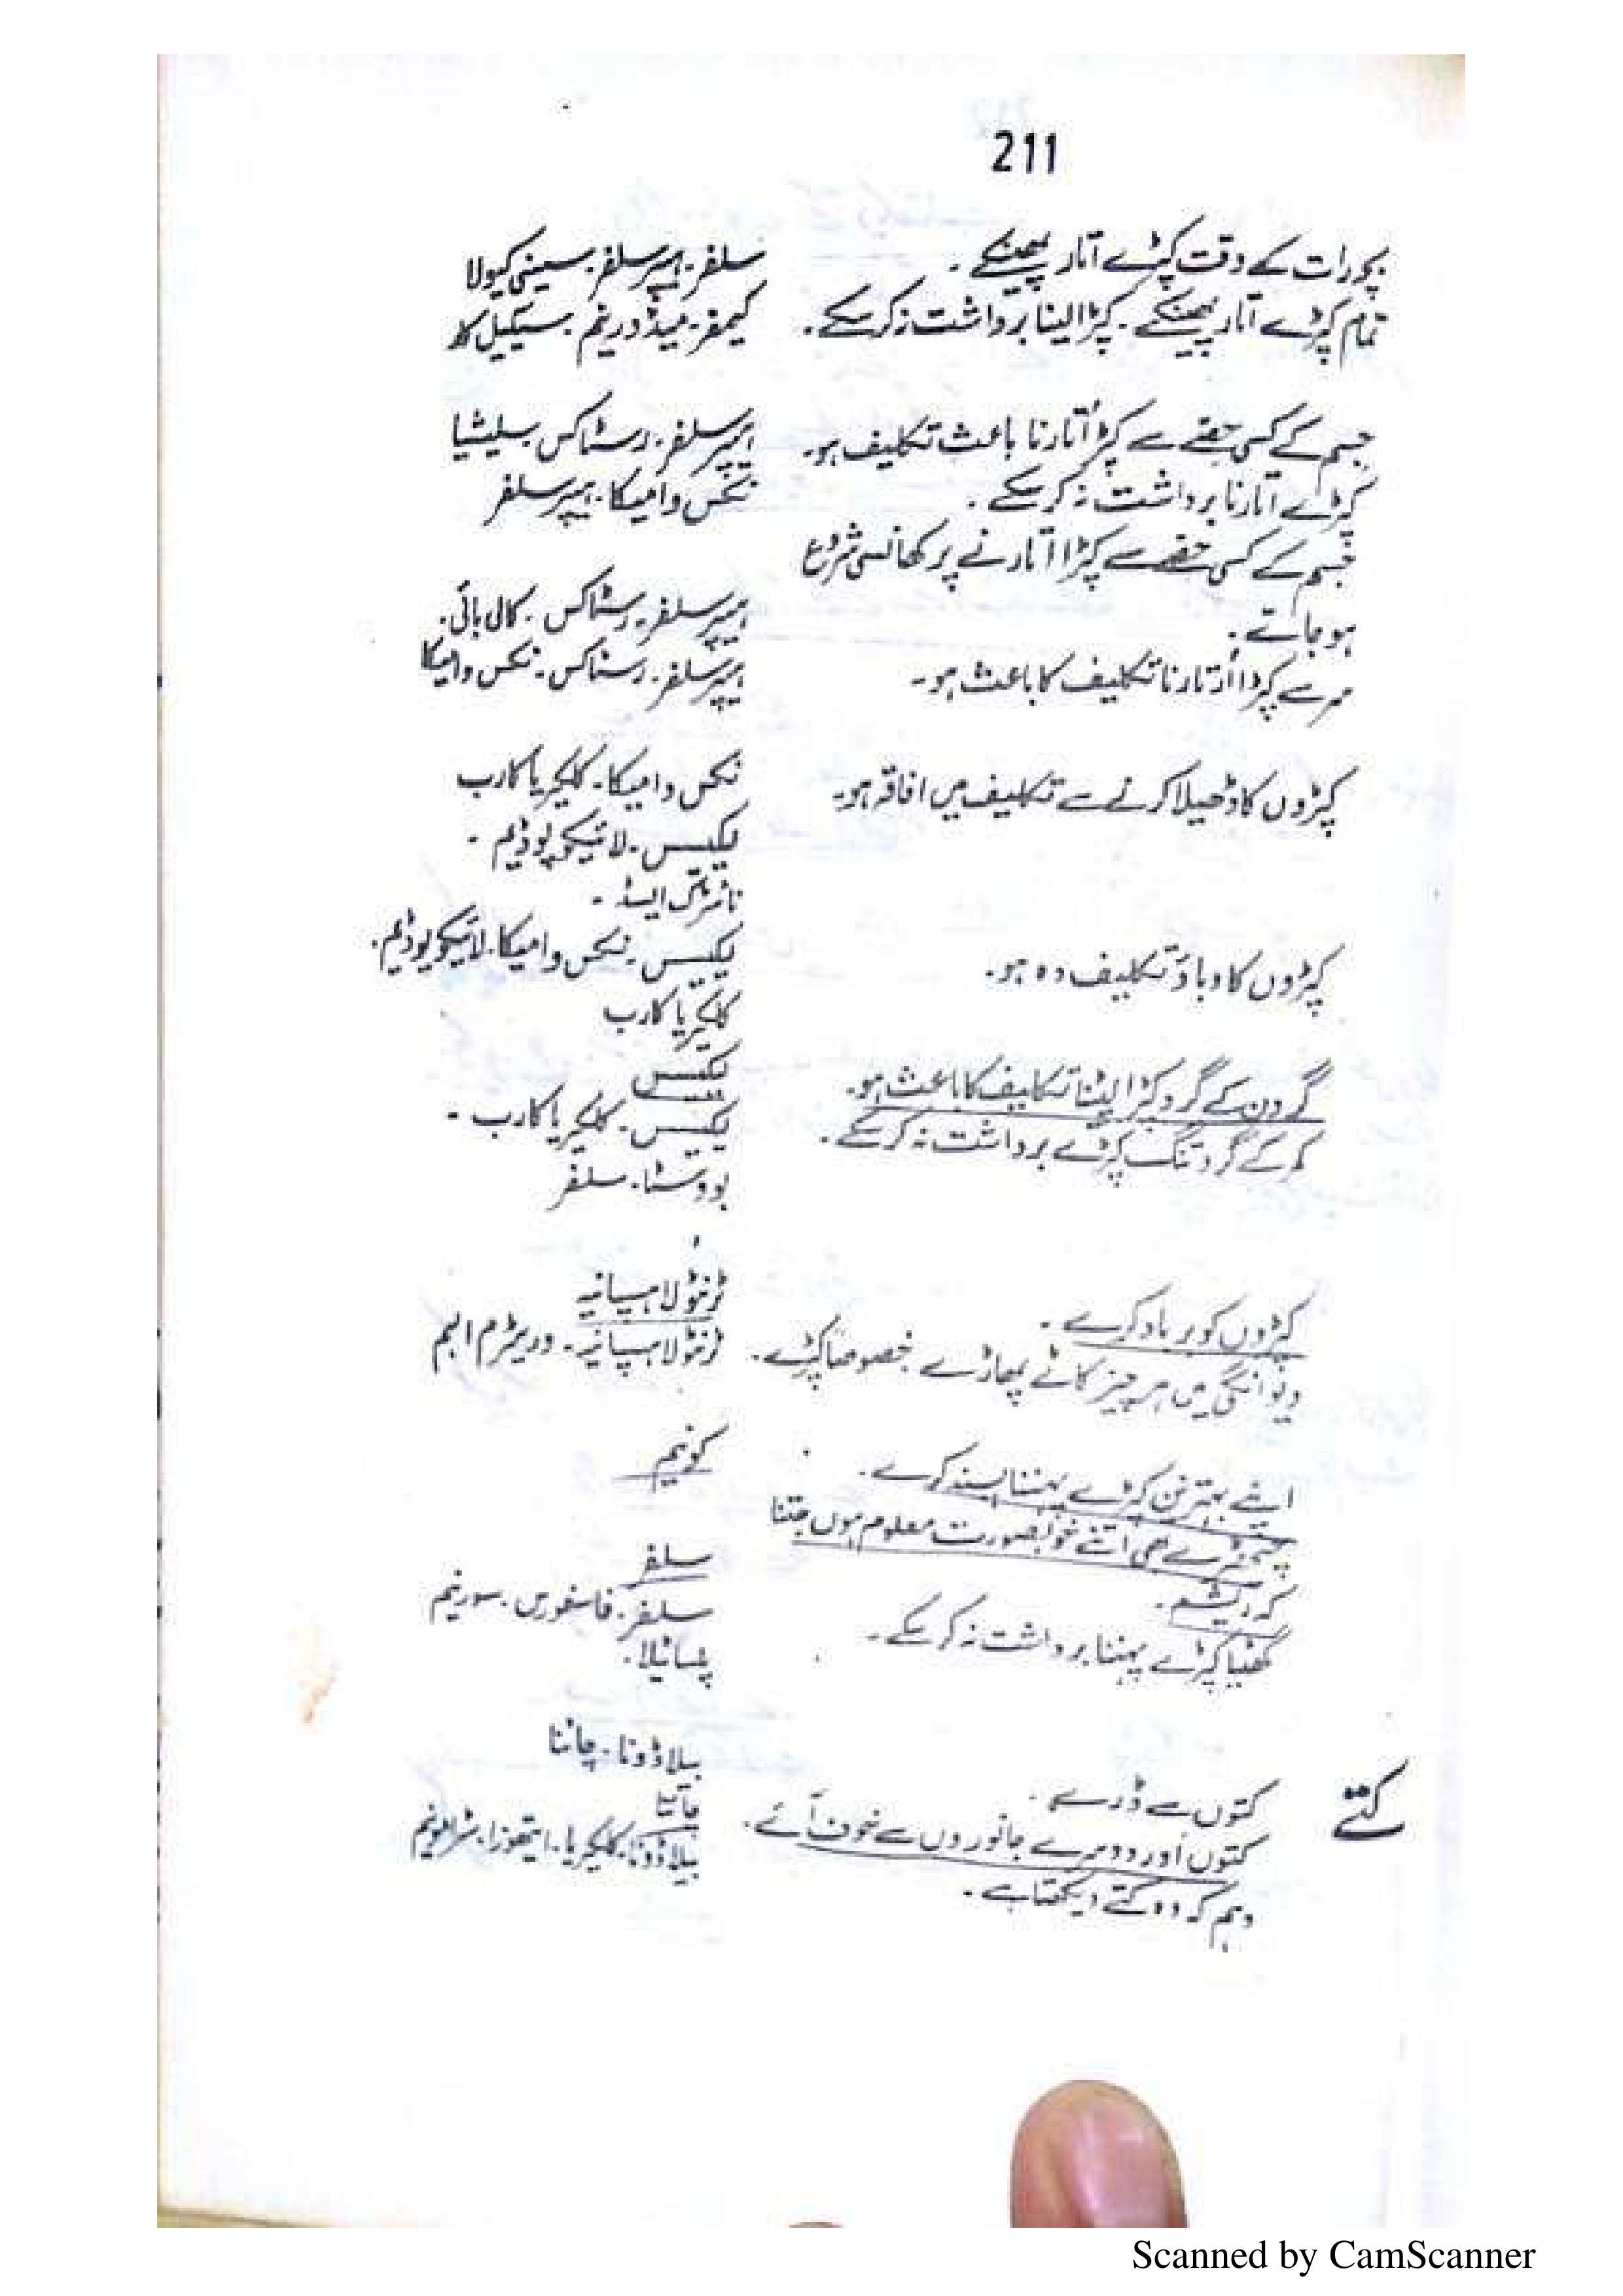 211
بچہ رات کے وقت کپڑے اتار پھینکے۔
سلفر۔ ہیپر سلفر۔ سینی کیولا
تمام کپڑے اتار پھینکے۔ کپڑا لینا برداشت نہ کر سکے۔
کیمفر۔ میڈورینم۔ سیکیل کار
جسم کے کسی حصے سے کپڑا اُتارنا باعث تکلیف ہو۔
ہیپر سلفر۔ رسٹاکس۔ سلیشیا
کپڑے اتارنا برداشت نہ کر سکے۔
نکس وامیکا۔ ہیپر سلفر
جسم کے کسی حصے سے کپڑا اتارنے پر کھانسی شروع
ہو جائے۔
ہیپر سلفر۔ رسٹاکس۔ کالی بائی۔
سر سے کپڑا اُتارنا تکلیف کا باعث ہو۔
ہیپر سلفر۔ رسٹاکس۔ نکس وامیکا
کپڑوں کا ڈھیلا کرنے سے تکلیف میں افاقہ ہو۔
نکس وامیکا۔ کلکیریا کارب
لیکیسس۔ لائیکوپوڈیم۔
نائٹرک ایسڈ۔
کپڑوں کا دباؤ تکلیف دہ ہو۔
لیکیسس۔ نکس وامیکا۔ لائیکوپوڈیم۔
کلکیریا کارب
گردن کے گرد کپڑا لپٹنا تکلیف کا باعث ہو۔
لیکیسس
کمر کے گرد تنگ کپڑے برداشت نہ کر سکے۔
لیکیسس۔ کلکیریا کارب۔
بووسٹا۔ سلفر
کپڑوں کو برباد کرے۔
ٹرنٹولا ہسپانیہ
دیوانگی میں ہر چیز کاٹے پھاڑے خصوصاً کپڑے۔
ٹرنٹولا ہسپانیہ۔ وریٹرم البم
اپنے بہترین کپڑے پہننا پسند کرے۔
کونیم
چیتھڑے بھی اتنے خوبصورت معلوم ہوں جتنا
کہ ریشم۔
سلفر
گھٹیا کپڑے پہننا برداشت نہ کر سکے۔
سلفر۔ فاسفورس۔ سورینم
پلساٹیلا۔
کتے
کتوں سے ڈرے۔
بیلاڈونا۔ چائنا
کتوں اور دوسرے جانوروں سے خوف آئے۔
چائنا
وہم کہ وہ کتے دیکھتا ہے۔
بیلاڈونا۔ کلکیریا۔ ایتھوزا۔ سٹرامونیم
Scanned by CamScanner